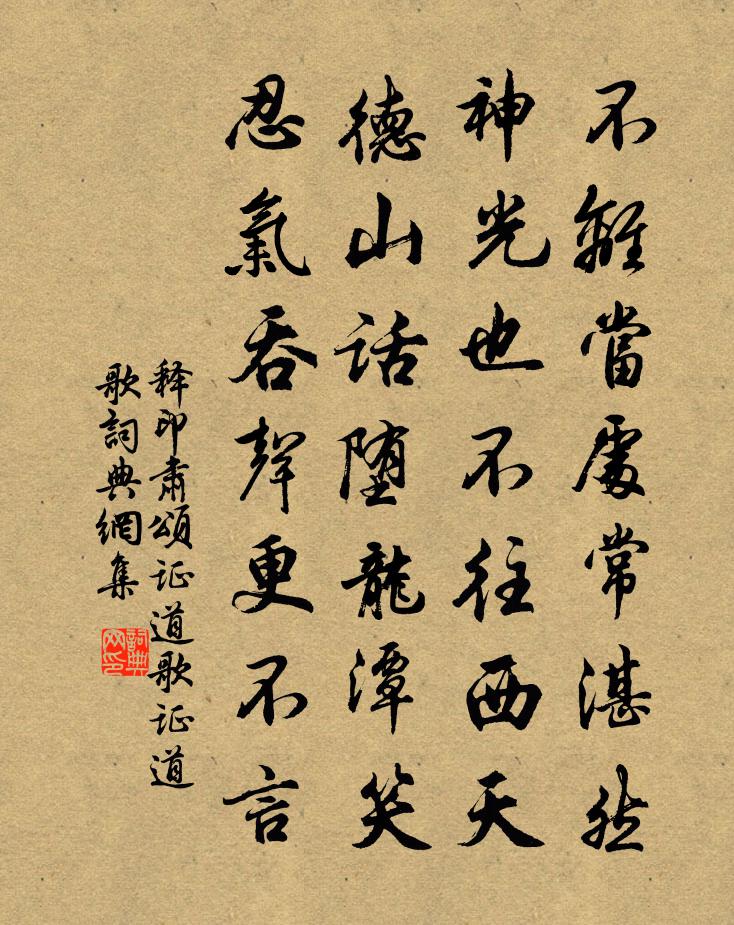 不離當處常湛然
神光也不往西天
德山話堕龍潭笑
忍氣吞聲更不言
释印肃頌证道歌证道
歌詞典網集
詞典网印